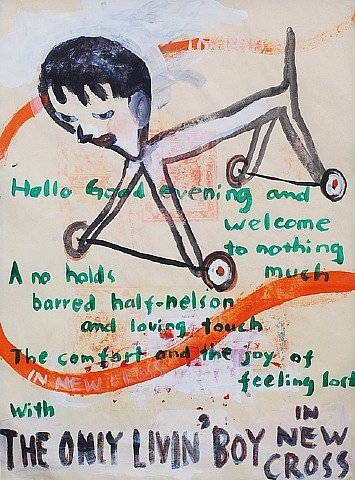 Hello Good evening and
welcome
to nothing
much
A no holds
barred half-nelson
and loving touch
The comfort and the joy of
IN NEW
feeling lost
with
THE ONLY LIVIN' BOY
IN
NEW
CROSS